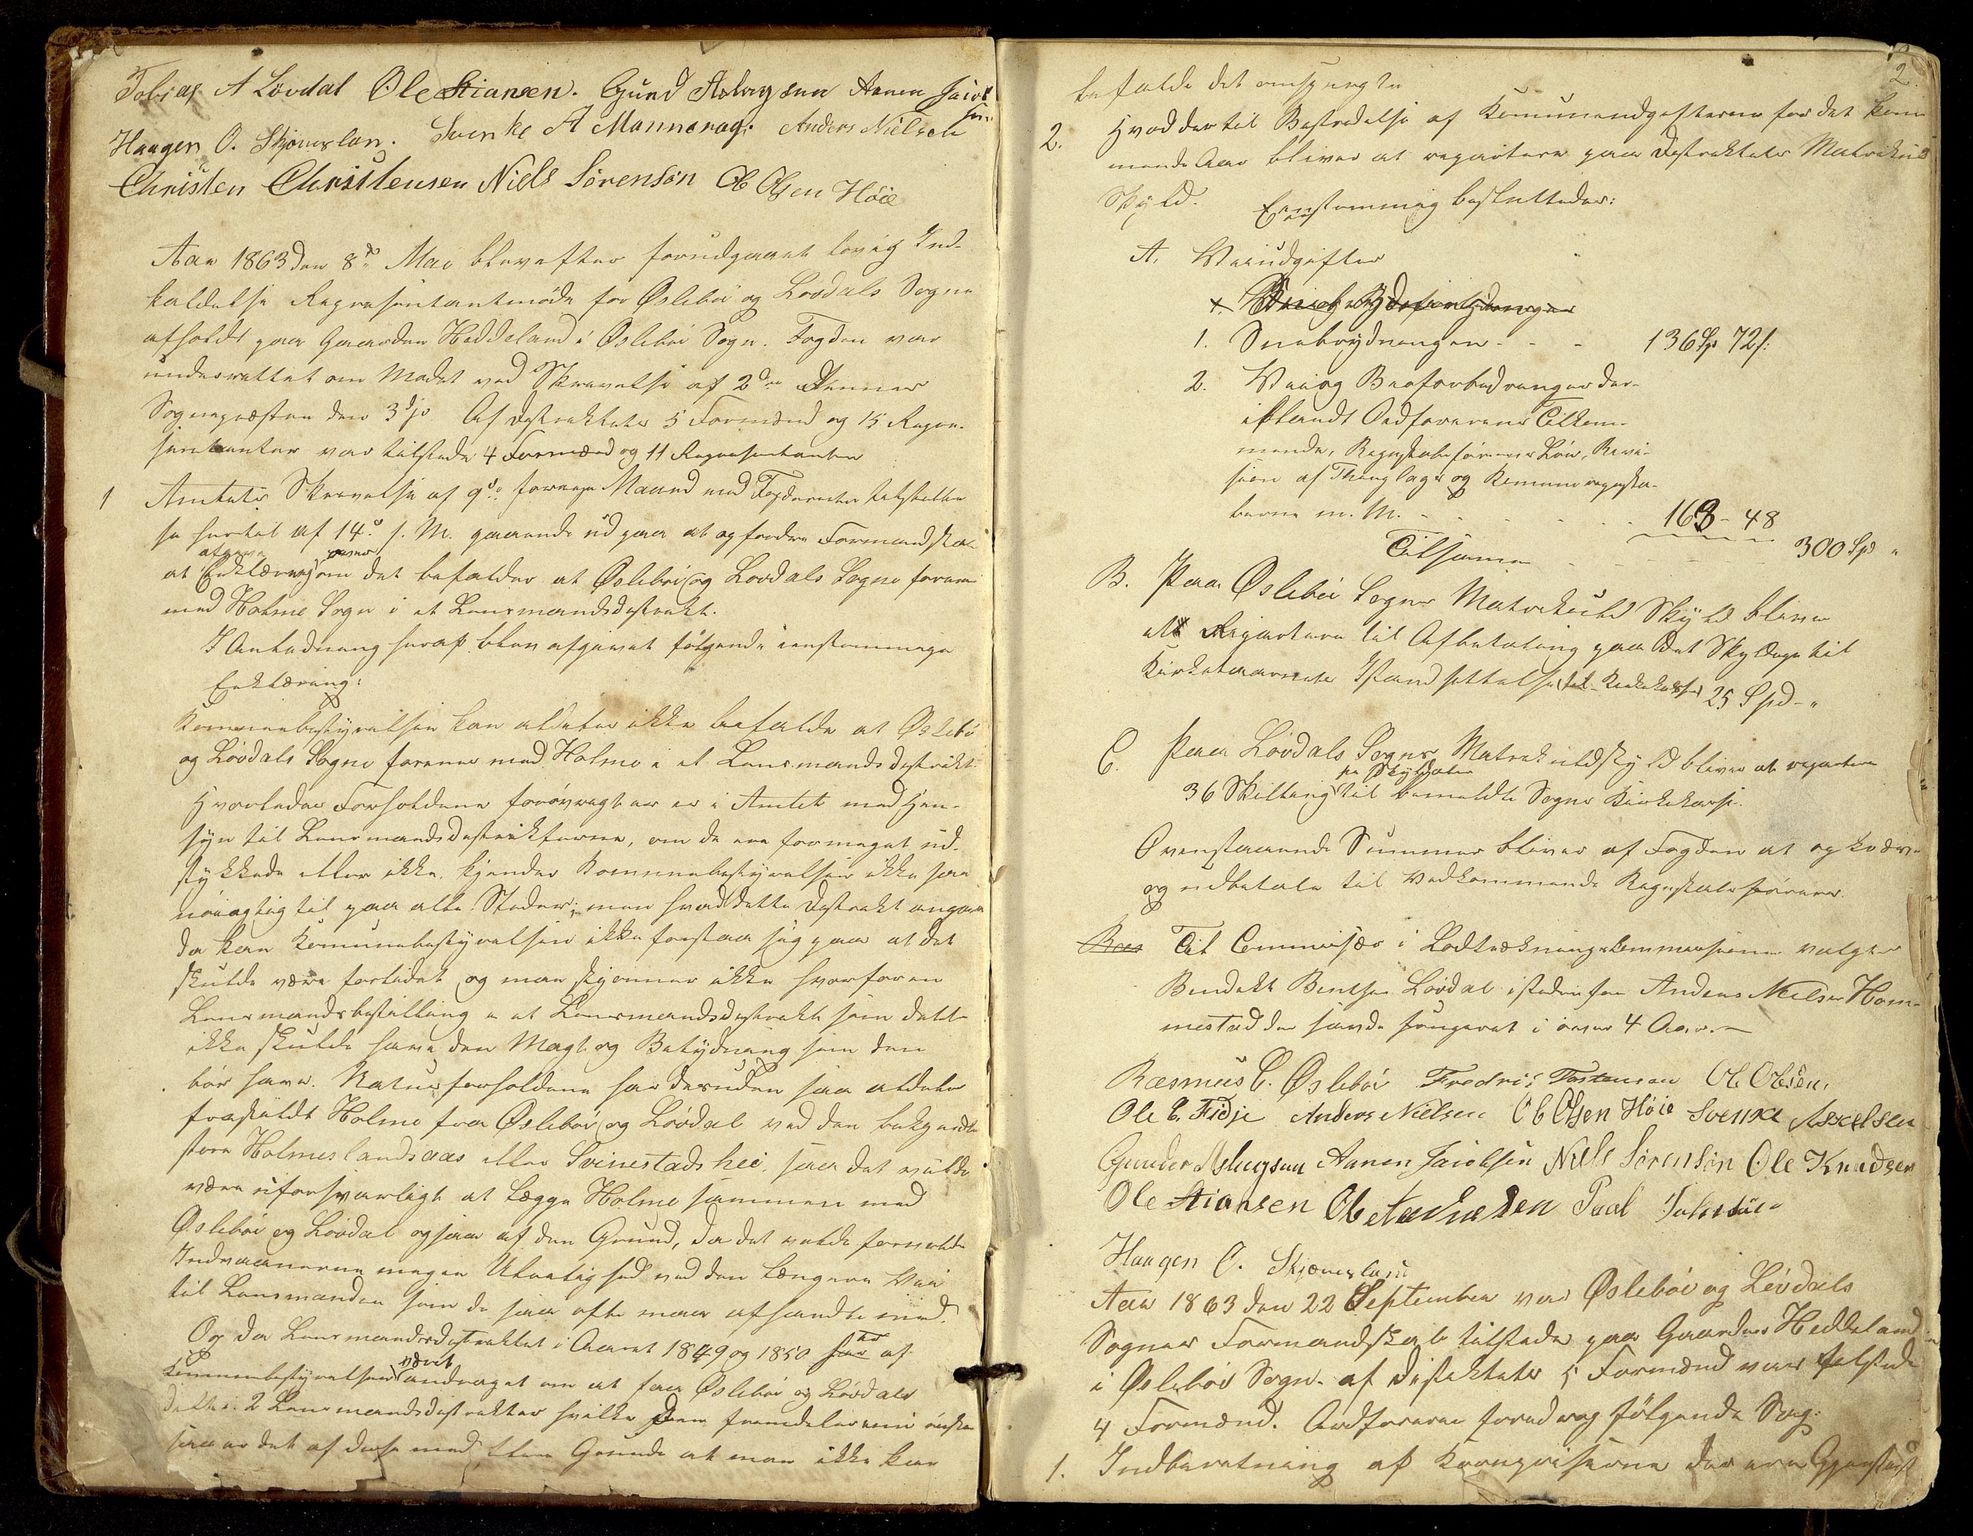 Tobias A Lövdal Ole Stiansen. Gund Aslagsen Aanen Jacob
sen
Haagen O. Skjæveslan. Svenke A Mannerag. Anders Nielsen
Christen Christensen Niels Sörensön Ole Olsen Höie
Aar 1863 den 8de Mai blev efter forudgaaet lovlig Ind-
kaldelse Representantmöde for Øslebö og Lövdals Sogne
afholdt paa Gaarden Heddeland i Øslebö Sogn. Fogden var
underrettet om Mödet ved Skrivelse af 2den Dennes
Sognepræsten den 3die Af Distriktets 5 Formænd og 15 Repre-
sentanter var tilstede 4 Formænd og 11 Representanter
1 Amtets Skrivelse af 9de forrige Maaned med Fogderiets
af 14de s. M. gaaende ud paa at opfordre Formandskabet
at afgive Erklæring om det befaldes at Øslebö og Lövdals Sogne forenes
med Holme Sogn i et Lensmandsdistrikt.
I Anledning heraf blev afgivet fölgende eenstemmige
Erklæring:
Kommunebestyrelsen kan aldeles ikke befalde at Øslebö
og Lövdals Sogne forenes med Holme i et Lensmandsdistrikt
Hvorledes Forholdene forövrigt er i Amtet med Hen-
syn til Lensmandsdistrikterne, om de ere formeget ud-
stykkede eller ikke, kjender Kommunebestyrelsen ikke saa
nöiagtig til paa alle Steder; men hvad dette Distrikt angaar
da kan Kommunebestyrelsen ikke forstaa sig paa at det
skulde være forlidet og man skjönner ikke hvorfor en
Lensmandsbestilling i et Lensmandsdistrikt som dette
ikke skulde have den Magt og Betydning som den
bör have. Naturforholdene har desuden saa aldeles
fraskildt Holme fra Øslebö og Lövdal ved den bekjendte
store Holmeslandsaas eller Svinestadshei, saa det vilde
være uforsvarligt at lægge Holme sammen med
Øslebö og Lövdal ogsaa af den Grund, da det vilde forvolde
Indvaanerne megen Uleilighed ved den længere Vei
til Lensmanden som de saa ofte maa afhandle med.
Og da Lensmandsdistriktet i Aaret 1849 og 1850 har af
Kommunebestyrelsen været andraget om at faa Øslebö og Lövdals
delt i 2 Lensmandsdistrikter hvilke Dem fremdeles önske
saa er det af disse med flere Grunde at man ikke kan
2
befalde det omspurgte
2. Hvad der til Bestridelse af Kommuneudgifterne for det kom-
mende Aar bliver at repartere paa Distriktets Matrikul
Skyld. Eenstemmig besluttedes:
A. Veiudgifter
1. Snebrydningen - - - 136 Sp 72 s:
2. Vei og Broforbedringer der-
iblandt Ordförerens Tilkom-
mende, Regnskabsförerens Lön, Revi-
sion af Thinglags og Kommuneregnska-
berne m. M. - - - - 163 - 48
Tilsammen - - - - 300 Spd "
B. Paa Øslebö Sogns Matrikuls Skyld bliver
at Repartere til Afbetaling paa det Skyldige til
Kirketaarnets Istandsættelse til Kirkekassen 25 Spd - "
C. Paa Lövdals Sogns Matrikulskyld bliver at repartere
36 Skilling pr Skylddaler til bemeldte Sogns Kirkekasse.
Ovenstaaende Summer bliver af Fogden at opkræve
og udbetale til Vedkommende Regnskabsförere.
Til Commissær i Lodtrækningscommissionen valgtes
Bendikt Bentsen Lövdal istedenfor Anders Nielsen Hom-
mestad der havde fungeret i over 4 Aar. -
Rasmus C. Øslebö Fredrik Torstensen Ole Olsen,
Ole E. Fidje Anders Nielsen Ole Olsen Höie Svenke Asselsen
Gunder Aslagsen Aanen Jacobsen Niels Sörensön Ole Knudsen
Ole Stiansen Ole Paal
Haagen O. Skjæveslan
Aar 1863 den 22 September var Øslebö og Lövdals
Sognes Formandskab tilstede paa Gaarden Heddeland
i Øslebö Sogn. af Distriktets 5 Formænd vare tilstede
4 Formænd. Ordföreren foredrog fölgende Sag:
1. Indberetning af Kornpriserne der ere Gjenstand